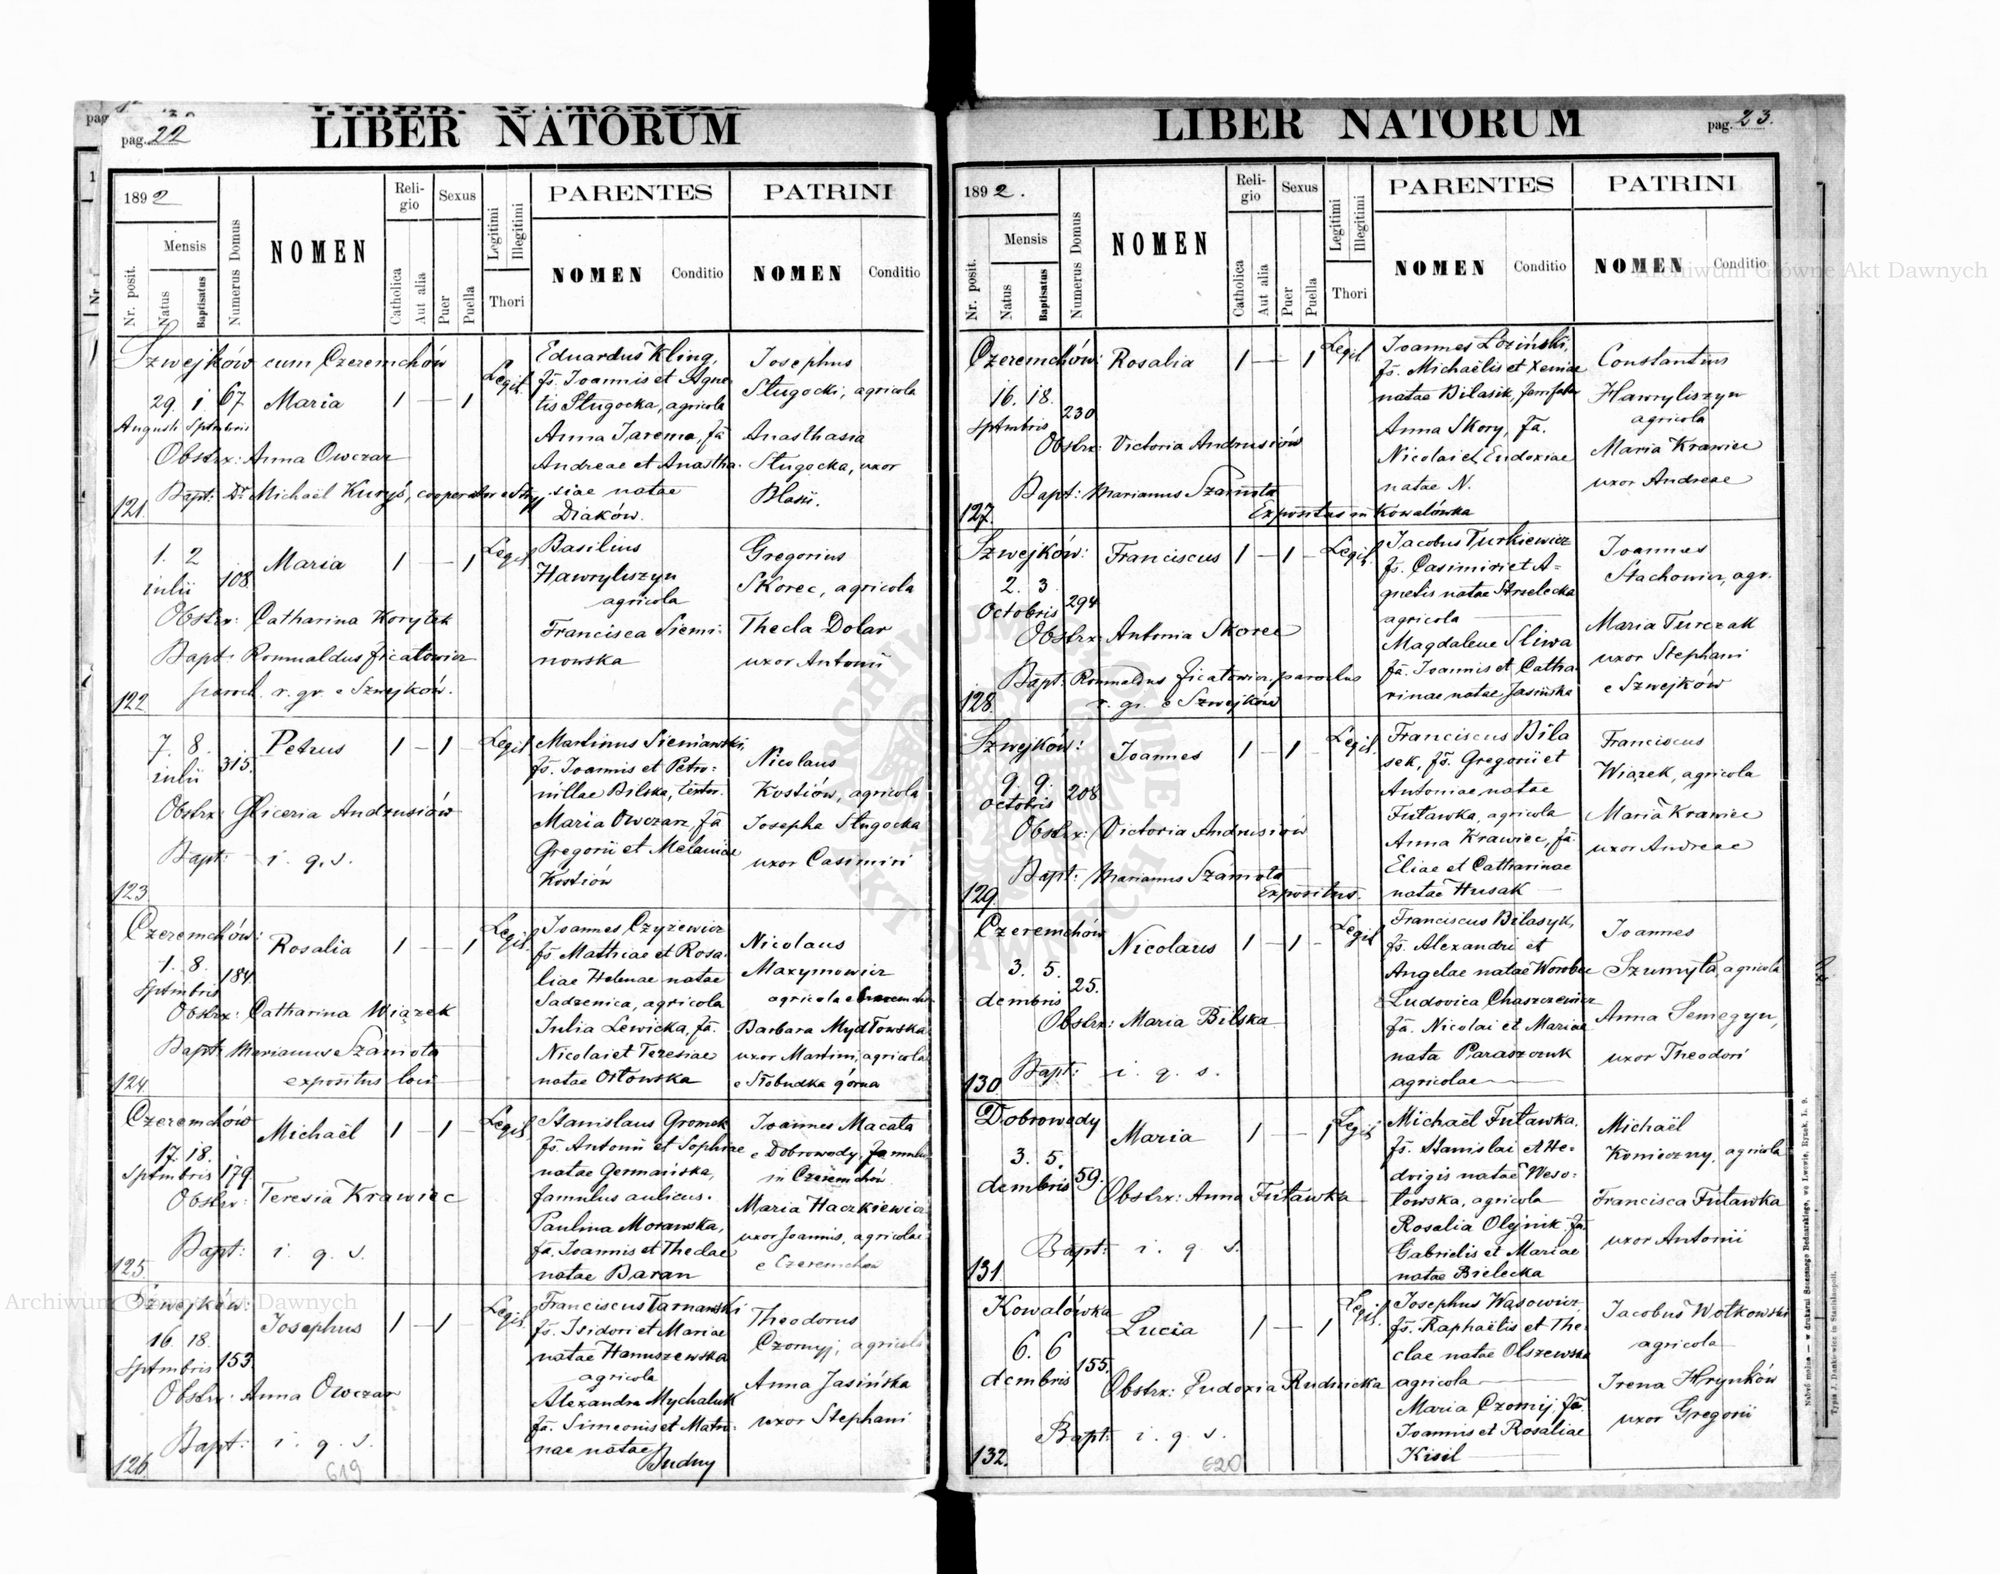 pag. 22
LIBER NATORUM
1892
Reli-
gio
Sexus
Legitimi
Illegitimi
PARENTES
PATRINI
Nr. posit.
Mensis
Natus
Baptisatus
Numerus Domus
NOMEN
Catholica
Aut alia
Puer
Puella
Thori
NOMEN
Conditio
NOMEN
Conditio
Szwejków cum Czeremchów
29. 1. 67. Maria 1 — 1 Legit.
Augusti Septembris
Obstrx: Anna Owczar
Bapt: Dr Michaël Kuryś, cooperator e
121.
Eduardus Kling,
fs. Joannis et Agne-
tis Sługocka, agricola
Anna Jarema, fa
Andreae et Anastha-
siae natae
Diaków.
Josephus
Sługocki, agricola
Anasthasia
Sługocka, uxor
Blasii.
1. 2
iulii 108. Maria 1 — 1 Legit.
Obstrx: Catharina Korytek
Bapt: Romualdus Ficałowicz
paroch. r. gr. e Szwejków.
122.
Basilius
Hawryliszyn
agricola
Francisca Siemi-
nowska
Gregorius
Skorec, agricola
Thecla Dolar
uxor Antonii
7. 8.
iulii 315. Petrus 1 — 1 Legit.
Obstrx: Gliceria Andrusiów
Bapt: i. q. s.
123.
Martinus Sieniawski,
fs. Joannis et Petro-
nillae Bilska,
Maria Owczar, fa
Gregorii et Melaniae
Kostiów
Nicolaus
Kostiów, agricola
Josepha Sługocka
uxor Casimiri
Czeremchów:
1. 8. 184. Rosalia 1 — 1 Legit.
Sptmbris
Obstrx: Catharina Wiązek
Bapt: Marianus Szamota
expositus loci
124.
Joannes Czyżewicz
fs. Mathiae et Rosa-
liae Helenae natae
Sadzenica, agricola
Julia Lewicka, fa.
Nicolai et Teresiae
natae Orłowska
Nicolaus
Maxymowicz
agricola e
Barbara Mydłowska
uxor Martini, agricola
e Słobudka górna
Czeremchów
17. 18. Michaël 1 — 1 Legit.
Sptmbris 179.
Obstrx: Teresia Krawiec
Bapt: i. q. s.
125.
Stanislaus Gromek
fs. Antonii et Sophiae
natae Germańska,
famulus aulicus.
Paulina Morawska,
fa. Joannis et Theclae
natae Baran
Joannes Macała
e Dobrowody, famulus
in Czeremchów
Maria Haczkiewicz
uxor Joannis, agricolae
e Czeremchów
Szwejków:
16. 18. Josephus 1 — 1 Legit.
Sptmbris 153.
Obstrx: Anna Owczar
Bapt: i. q. s.
126.
Franciscus Tarnawski
fs. Isidori et Mariae
natae Hanuszewska
agricola
Alexandra Mychaluk
fa. Simeonis et Matro-
nae natae
Budny
Theodorus
Czornyj, agricola
Anna Jasińska
uxor Stephani
619
LIBER NATORUM
pag. 23.
1892.
Reli-
gio
Sexus
Legitimi
Illegitimi
PARENTES
PATRINI
Nr. posit.
Mensis
Natus
Baptisatus
Numerus Domus
NOMEN
Catholica
Aut alia
Puer
Puella
Thori
NOMEN
Conditio
NOMEN
Conditio
Czeremchów: Rosalia 1 — 1 Legit
16. 18.
Sptmbris 230
Obstrx: Victoria Andrusiów
Bapt: Marianus Szamota
Expositus in Kowalówka
127.
Joannes Łoziński,
fs. Michaëlis et Xeniae
natae Bilasik,
Anna Skory, fa.
Nicolai et Eudoxiae
natae N.
Constantius
Hawryliszyn
agricola
Maria Krawiec
uxor Andreae
Szwejków: Franciscus 1 — 1 Legit.
2. 3
Octobris 294
Obstrx: Antonia Skorec
Bapt: Romualdus Ficałowicz, parochus
r. gr. e Szwejków
128.
Jacobus Turkiewicz
fs. Casimiri et A-
gnetis natae Strzelecka
agricola
Magdalene Sliwa
fa. Joannis et Catha-
rinae natae Jasińska
Joannes
Stachowicz, agr.
Maria Turczak
uxor Stephani
e Szwejków
Szwejków: Joannes 1 — 1 Legit.
9. 9.
octobris 208
Obstrx: Victoria Andrusiów
Bapt: Marianus Szamota
Expositus.
129.
Franciscus Bila
sek, fs. Gregorii et
Antoniae natae
Futawka, agricola
Anna Krawiec, fa.
Eliae et Catharinae
natae Husak
Franciscus
Wiązek, agricola
Maria Krawiec
uxor Andreae
Czeremchów Nicolaus 1 — 1 — Legit
3. 5.
dcmbris 25.
Obstrx: Maria Bilska
Bapt: i. q. s.
130.
Franciscus Bilasyk,
fs. Alexandri et
Angelae natae Worobec
Ludovica Chaszczewicz
fa. Nicolai et Mariae
nata Paraszczuk
agricolae
Joannes
Szumyła, agricola
Anna Semegyn,
uxor Theodori
Dobrowody Maria 1 — 1 Legit.
3. 5.
dcmbris 59.
Obstrx: Anna Futawka
Bapt: i. q. s.
131.
Michaël Futawka,
fs. Stanislai et He-
dvigis natae Weso-
łowska, agricola
Rosalia Olejnik. fa.
Gabrielis et Mariae
natae Bielecka
Michaël
Konieczny, agricola
Francisca Futawka
uxor Antonii
Kowalówka
6. 6 Lucia 1 — 1 Legit.
dcmbris 155.
Obstrx: Eudoxia Rudnicka
Bapt: i. q. s.
132.
Josephus Wąsowicz,
fs. Raphaëlis et The-
clae natae Olszewska
agricola
Maria Czornij, fa.
Joannis et Rosaliae
Kisil
Jacobus Wołkowski
agricola
Irena Hrynków
uxor Gregorii
620
Archiwum Główne Akt Dawnych
Archiwum Główne Akt Dawnych